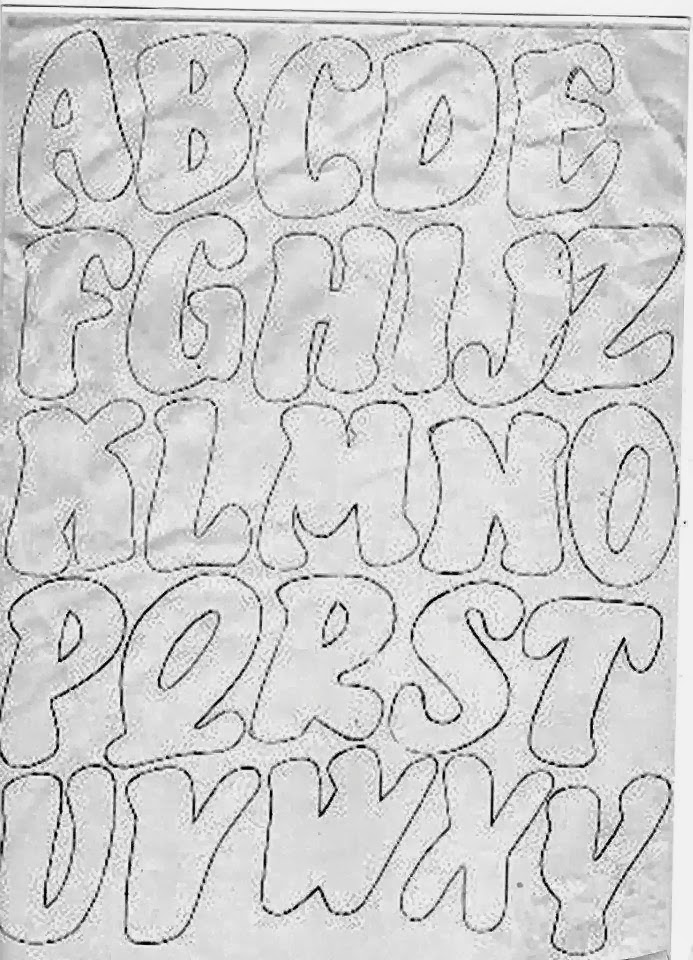 ABCDE
FGHIJZ
KLMNO
PQRST
UVWXY